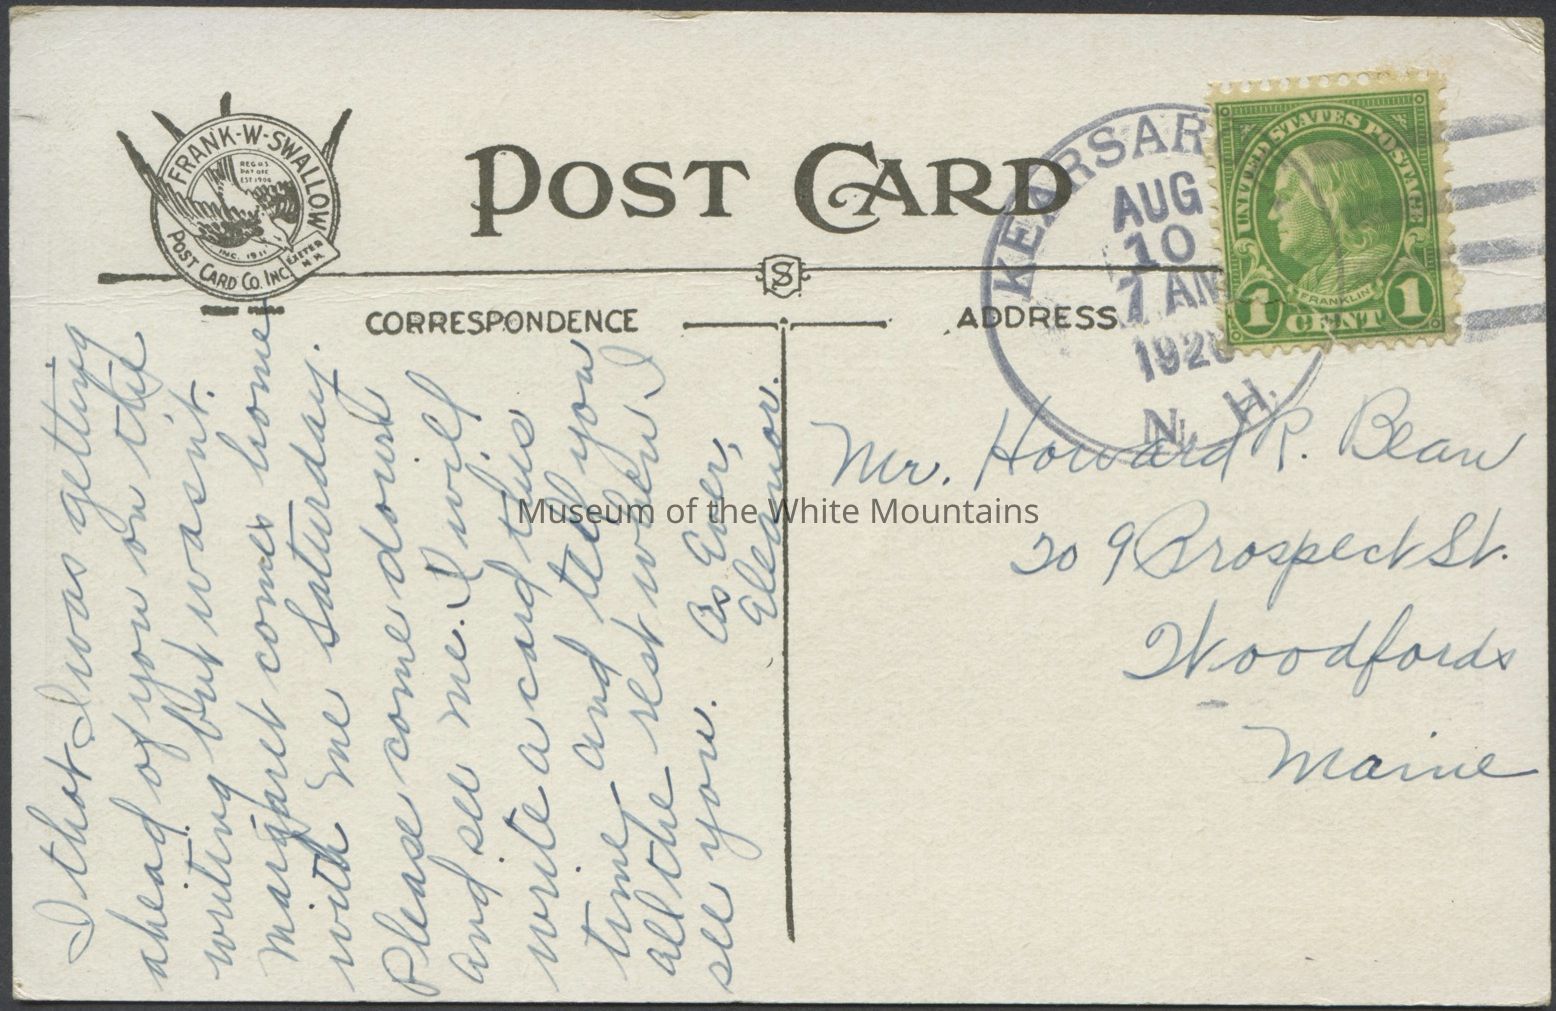 FRANK-W-SWALLOW
REG US
PAT OFF
EST 1906
INC. 1911
POST CARD CO. INC.
EXETER
N.H.
POST CARD
S
CORRESPONDENCE
ADDRESS
KEARSAR
AUG
10
7 AM
192
N. H.
UNITED STATES POSTAGE
FRANKLIN
1 CENT 1
I thot I was getting
ahead of you on the
writing but wasn't.
Margaret comes home
with me Saturday.
Please come down
and see me. I will
write a card this
time and tell you
all the rest when I
see you. As Ever,
Eleanor.
Mr. Howard R. Bean
209 Prospect St.
Woodfords
Maine
Museum of the White Mountains